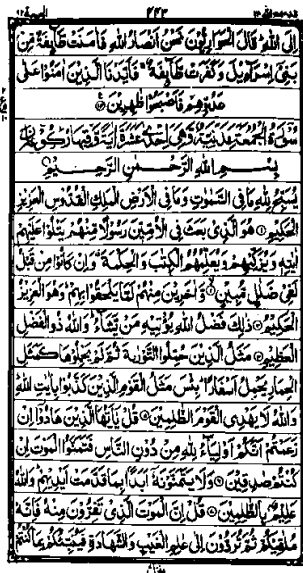 إِلَى اللَّهِ قَالَ الْحَوَارِيُّونَ نَحْنُ أَنْصَارُ اللَّهِ فَآمَنَتْ طَائِفَةٌ مِنْ
بَنِي إِسْرَائِيلَ وَكَفَرَتْ طَائِفَةٌ فَأَيَّدْنَا الَّذِينَ آمَنُوا عَلَى
عَدُوِّهِمْ فَأَصْبَحُوا ظَاهِرِينَ
سُورَةُ الْجُمُعَةِ مَدَنِيَّةٌ وَهِيَ إِحْدَى عَشْرَةَ آيَةً وَفِيهَا رُكُوعَانِ
بِسْمِ اللَّهِ الرَّحْمَنِ الرَّحِيمِ
يُسَبِّحُ لِلَّهِ مَا فِي السَّمَوَاتِ وَمَا فِي الْأَرْضِ الْمَلِكِ الْقُدُّوسِ الْعَزِيزِ
الْحَكِيمِ هُوَ الَّذِي بَعَثَ فِي الْأُمِّيِّينَ رَسُولًا مِنْهُمْ يَتْلُوا عَلَيْهِمْ
آيَتِهِ وَيُزَكِّيهِمْ وَيُعَلِّمُهُمُ الْكِتَبَ وَالْحِكْمَةَ وَإِنْ كَانُوا مِنْ قَبْلُ
لَفِي ضَلَلٍ مُبِينٍ وَآخَرِينَ مِنْهُمْ لَمَّا يَلْحَقُوا بِهِمْ وَهُوَ الْعَزِيزُ
الْحَكِيمُ ذَلِكَ فَضْلُ اللَّهِ يُؤْتِيهِ مَنْ يَشَاءُ وَاللَّهُ ذُو الْفَضْلِ
الْعَظِيمِ مَثَلُ الَّذِينَ حُمِّلُوا التَّوْرَاةَ ثُمَّ لَمْ يَحْمِلُوهَا كَمَثَلِ
الْحِمَارِ يَحْمِلُ أَسْفَارًا بِئْسَ مَثَلُ الْقَوْمِ الَّذِينَ كَذَّبُوا بِآيَاتِ اللَّهِ
وَاللَّهُ لَا يَهْدِي الْقَوْمَ الظَّلِمِينَ قُلْ يَأَيُّهَا الَّذِينَ هَادُوا إِنْ
زَعَمْتُمْ أَنَّكُمْ أَوْلِيَاءُ لِلَّهِ مِنْ دُونِ النَّاسِ فَتَمَنَّوُا الْمَوْتَ إِنْ
كُنْتُمْ صَدِقِينَ وَلَا يَتَمَنَّوْنَهُ أَبَدًا بِمَا قَدَّمَتْ أَيْدِيهِمْ وَاللَّهُ
عَلِيمٌ بِالظَّلِمِينَ قُلْ إِنَّ الْمَوْتَ الَّذِي تَفِرُّونَ مِنْهُ فَإِنَّهُ
مُلَقِيكُمْ ثُمَّ تُرَدُّونَ إِلَى عَلِمِ الْغَيْبِ وَالشَّهَادَةِ فَيُنَبِّئُكُمْ بِمَا كُنْتُمْ